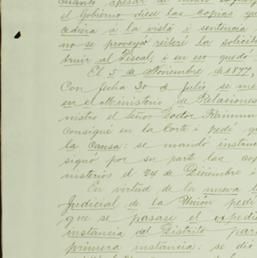 cuanto apesar de
el Gobierno diese las copias que
a la vista o sentencia
no se proveyó reiteré la solicitu
al Fiscal, i en eso quedó
El 5 de Noviembre de 1877,
Con fecha 30 de Julio se me
en el Ministerio de Relaciones
nistro el señor Doctor
Consigné en la Corte i pedí que
la Causa: se mandó
signó por su parte las
nisterios el 24 de Diciembre i
En virtud de la nueva
Judicial de la Unión pedí
que se pasase el expedi
instancia del Distrito para
primera instancia: se dió